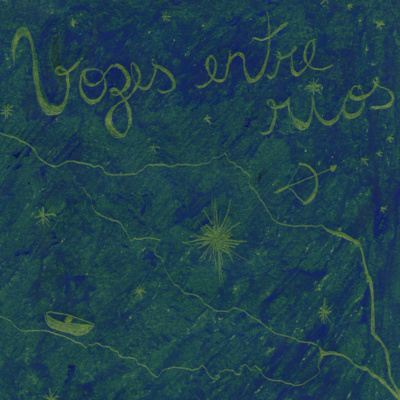 Vozes entre
rios